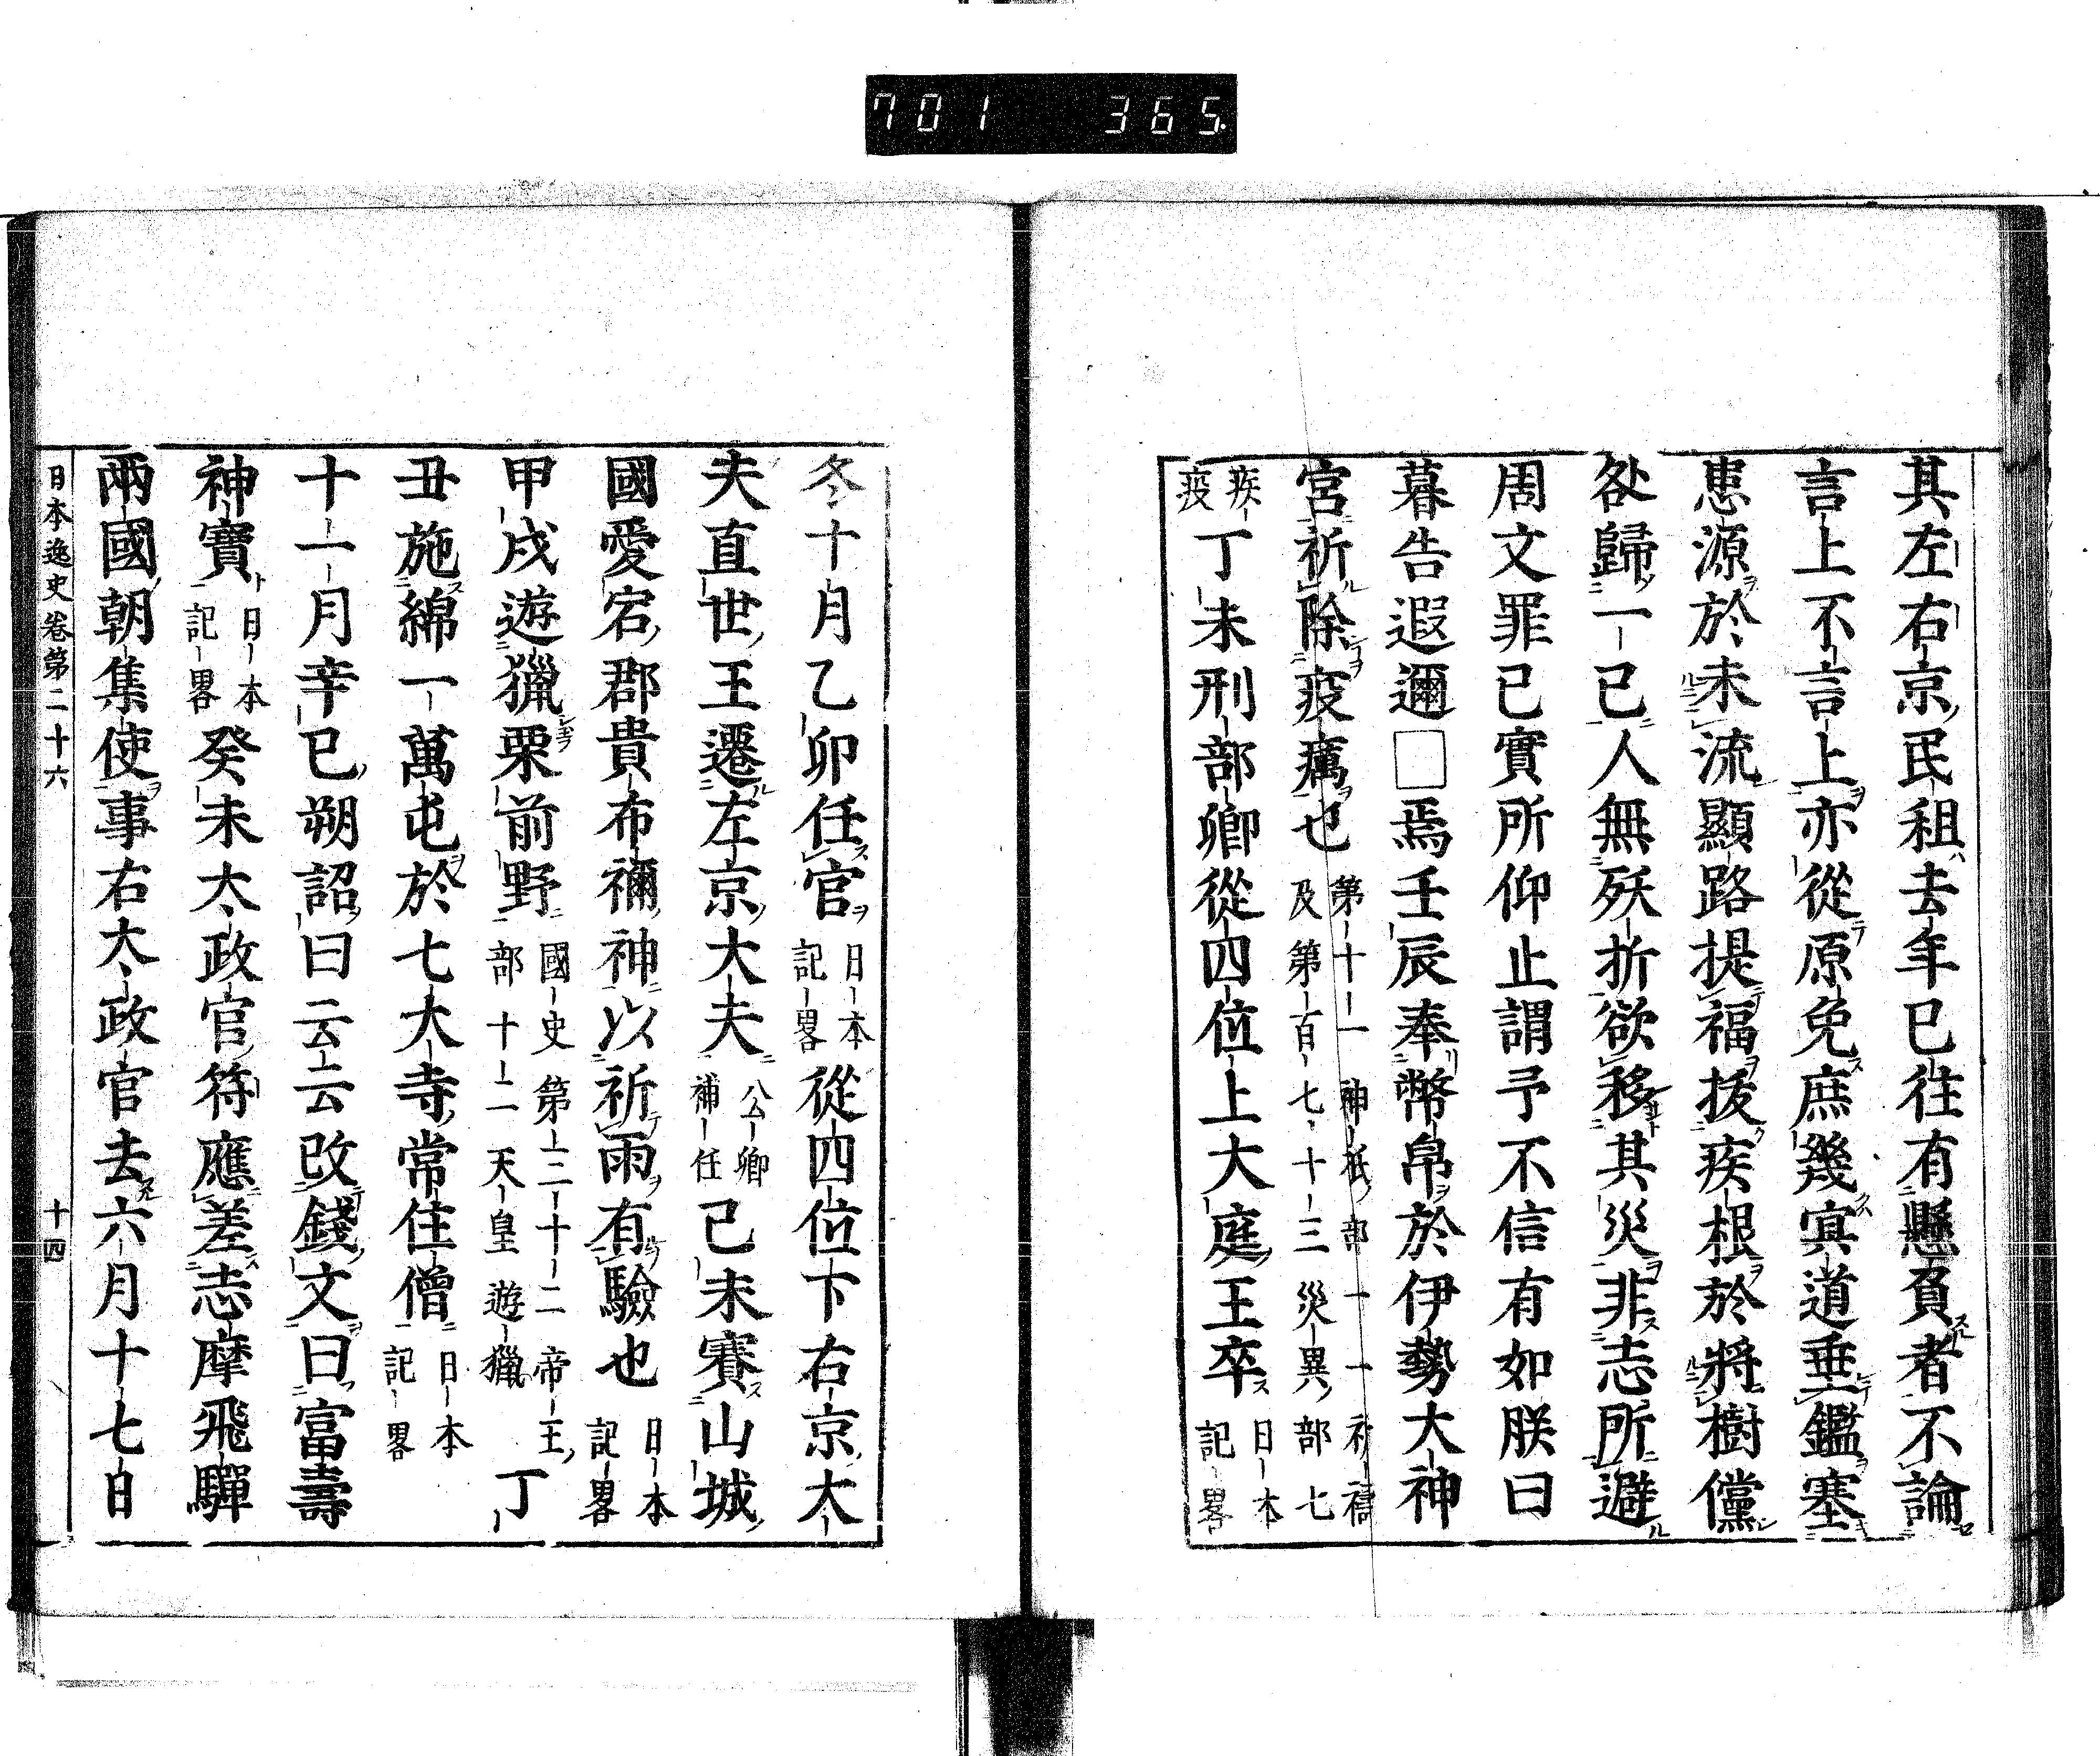 701 365.
其左右京民租去年已往有懸負者不論
言上不言上亦從原免庶幾冥道垂鑑塞
患源於未流顯路提福拔疾根於將樹儻
咎歸一已人無殀折欲移其災非志所避
周文罪已實所仰止謂予不信有如朕曰
暮告遐邇□焉壬辰奉幣帛於伊勢大神
宮祈除疫癘也第十一神祇部一一祈禱及第百七十三災異部七
疾疫丁未刑部卿從四位上大庭王卒日本記畧
冬十月乙卯任官日本記畧從四位下右京大
夫直世王遷左京大夫公卿補任己未賽山城
國愛宕郡貴布禰神以祈雨有驗也日本記畧
甲戌遊獵栗前野國史第三十二帝王部十二天皇遊獵丁
丑施綿一萬屯於七大寺常住僧日本記畧
十一月辛巳朔詔曰云云改錢文曰富壽
神寶日本記畧癸未太政官符應差志摩飛驒
兩國朝集使事右太政官去六月十七日
日本逸史卷第二十六 十四